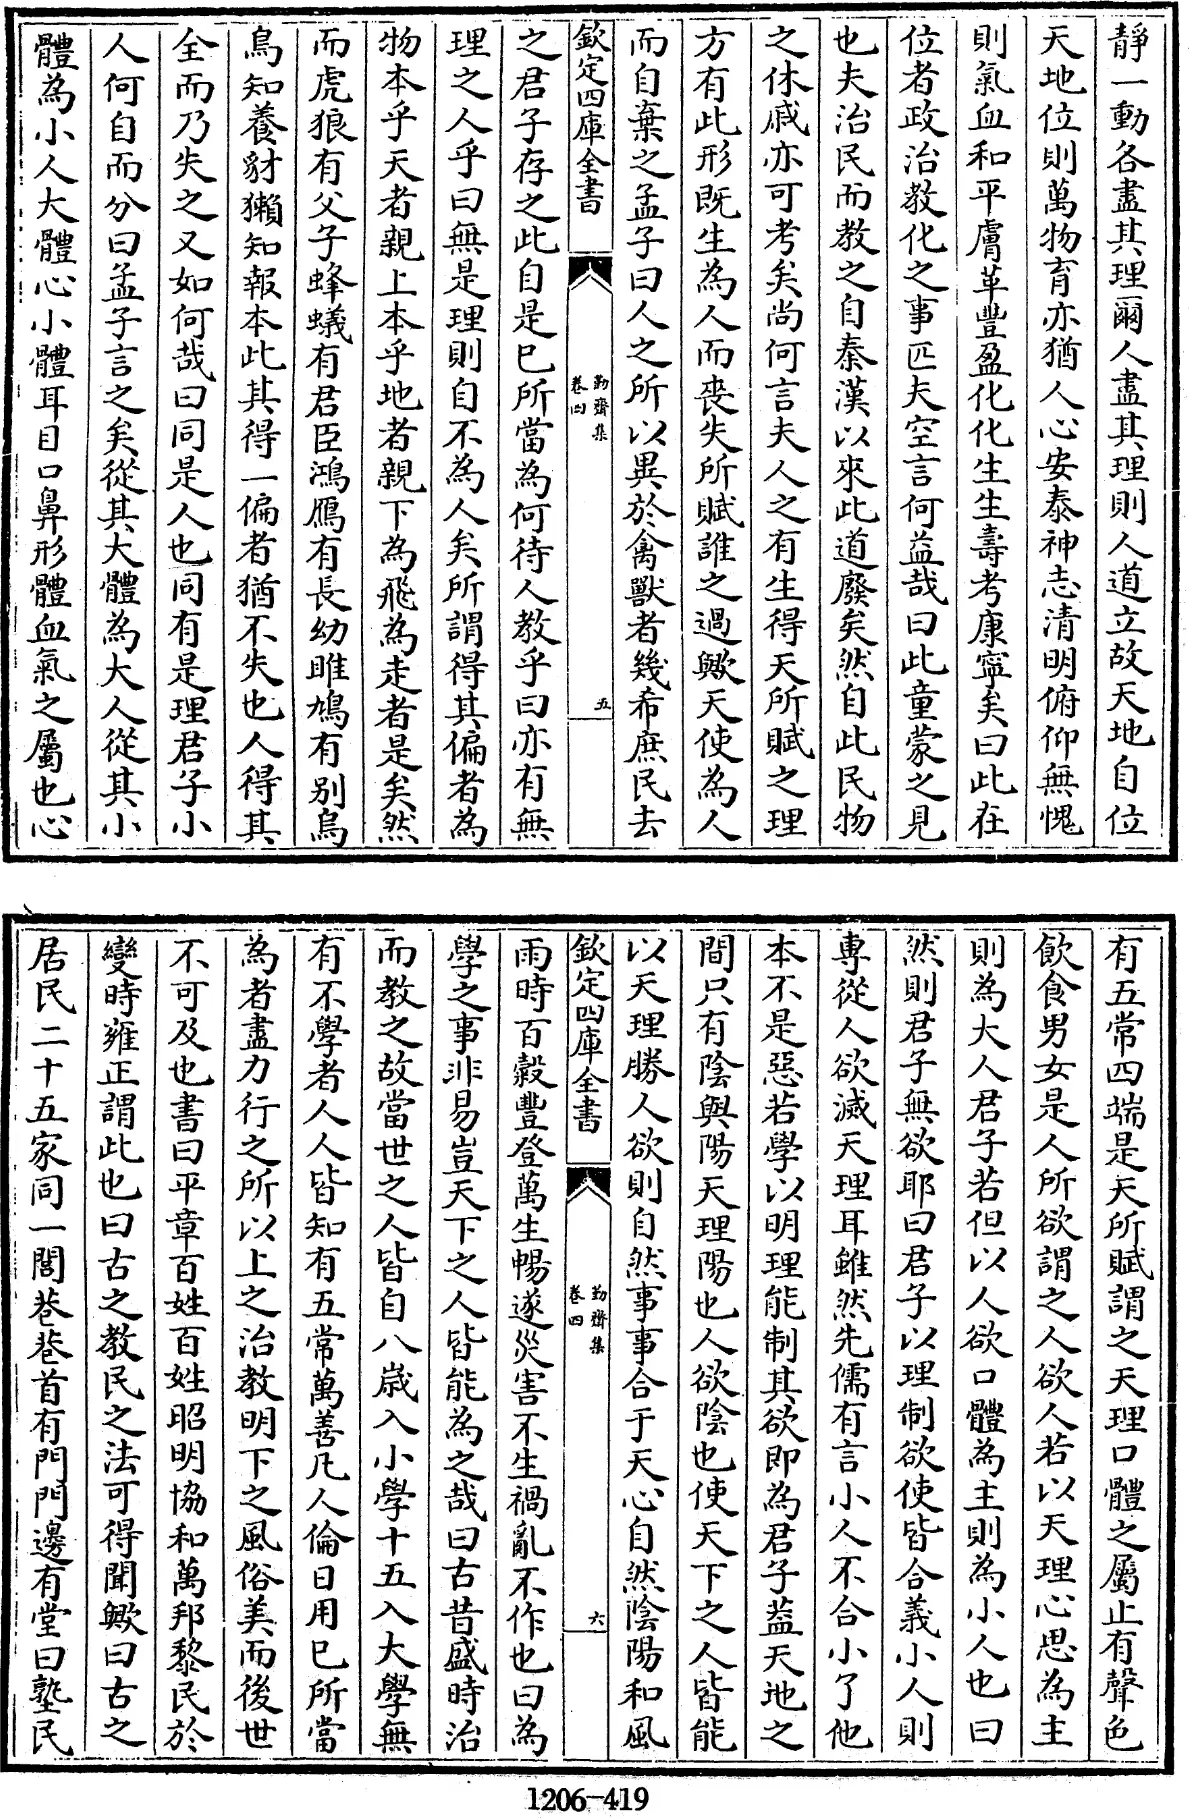 靜一動各盡其理爾人盡其理則人道立故天地自位
天地位則萬物育亦猶人心安泰神志清明俯仰無愧
則氣血和平膚革豐盈化化生生壽考康寧矣曰此在
位者政治教化之事匹夫空言何益哉曰此童蒙之見
也夫治民而教之自秦漢以來此道廢矣然自此民物
之休戚亦可考矣尚何言夫人之有生得天所賦之理
方有此形既生為人而喪失所賦誰之過歟天使為人
而自棄之孟子曰人之所以異於禽獸者幾希庶民去
欽定四庫全書
勤齋集
卷四
五
之君子存之此自是已所當為何待人教乎曰亦有無
理之人乎曰無是理則自不為人矣所謂得其偏者為
物本乎天者親上本乎地者親下為飛為走者是矣然
而虎狼有父子蜂蟻有君臣鴻鴈有長幼雎鳩有别烏
鳥知養豺獺知報本此其得一偏者猶不失也人得其
全而乃失之又如何哉曰同是人也同有是理君子小
人何自而分曰孟子言之矣從其大體為大人從其小
體為小人大體心小體耳目口鼻形體血氣之屬也心
有五常四端是天所賦謂之天理口體之屬止有聲色
飲食男女是人所欲謂之人欲人若以天理心思為主
則為大人君子若但以人欲口體為主則為小人也曰
然則君子無欲耶曰君子以理制欲使皆合義小人則
專從人欲滅天理耳雖然先儒有言小人不合小了他
本不是惡若學以明理能制其欲即為君子葢天地之
間只有陰與陽天理陽也人欲陰也使天下之人皆能
以天理勝人欲則自然事事合于天心自然陰陽和風
欽定四庫全書
勤齋集
卷四
六
雨時百穀豐登萬生暢遂災害不生禍亂不作也曰為
學之事非易豈天下之人皆能為之哉曰古昔盛時治
而教之故當世之人皆自八歲入小學十五入大學無
有不學者人人皆知有五常萬善凡人倫日用已所當
為者盡力行之所以上之治教明下之風俗美而後世
不可及也書曰平章百姓百姓昭明協和萬邦黎民於
變時雍正謂此也曰古之教民之法可得聞歟曰古之
居民二十五家同一閭巷巷首有門門邊有堂曰塾民
1206-419